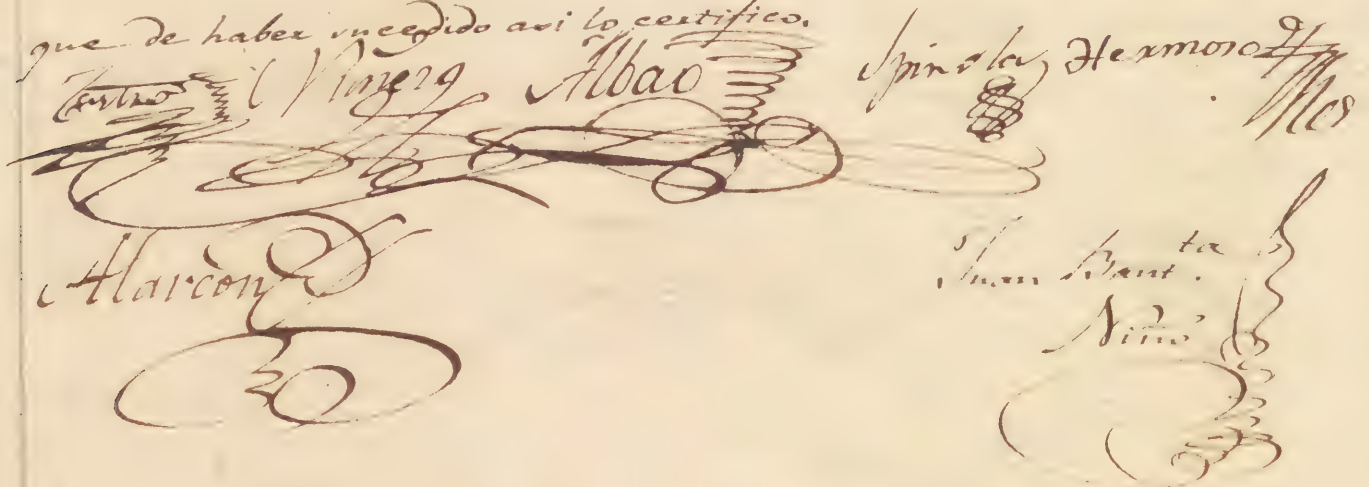 que de haber sucedido asi lo certifico.
Albao Spinola Hermoso
Alarcòn
Juan Baut.ta
Niño